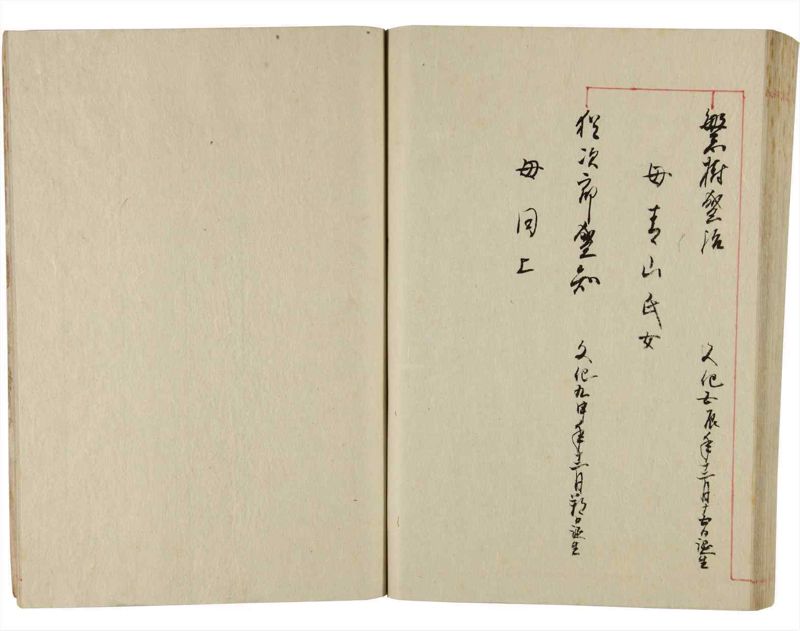 繁樹盛治 文化五辰年十二月十五日誕生
母青山氏女
猶次郎盛知 文化九申年十二月朔日誕生
母同上